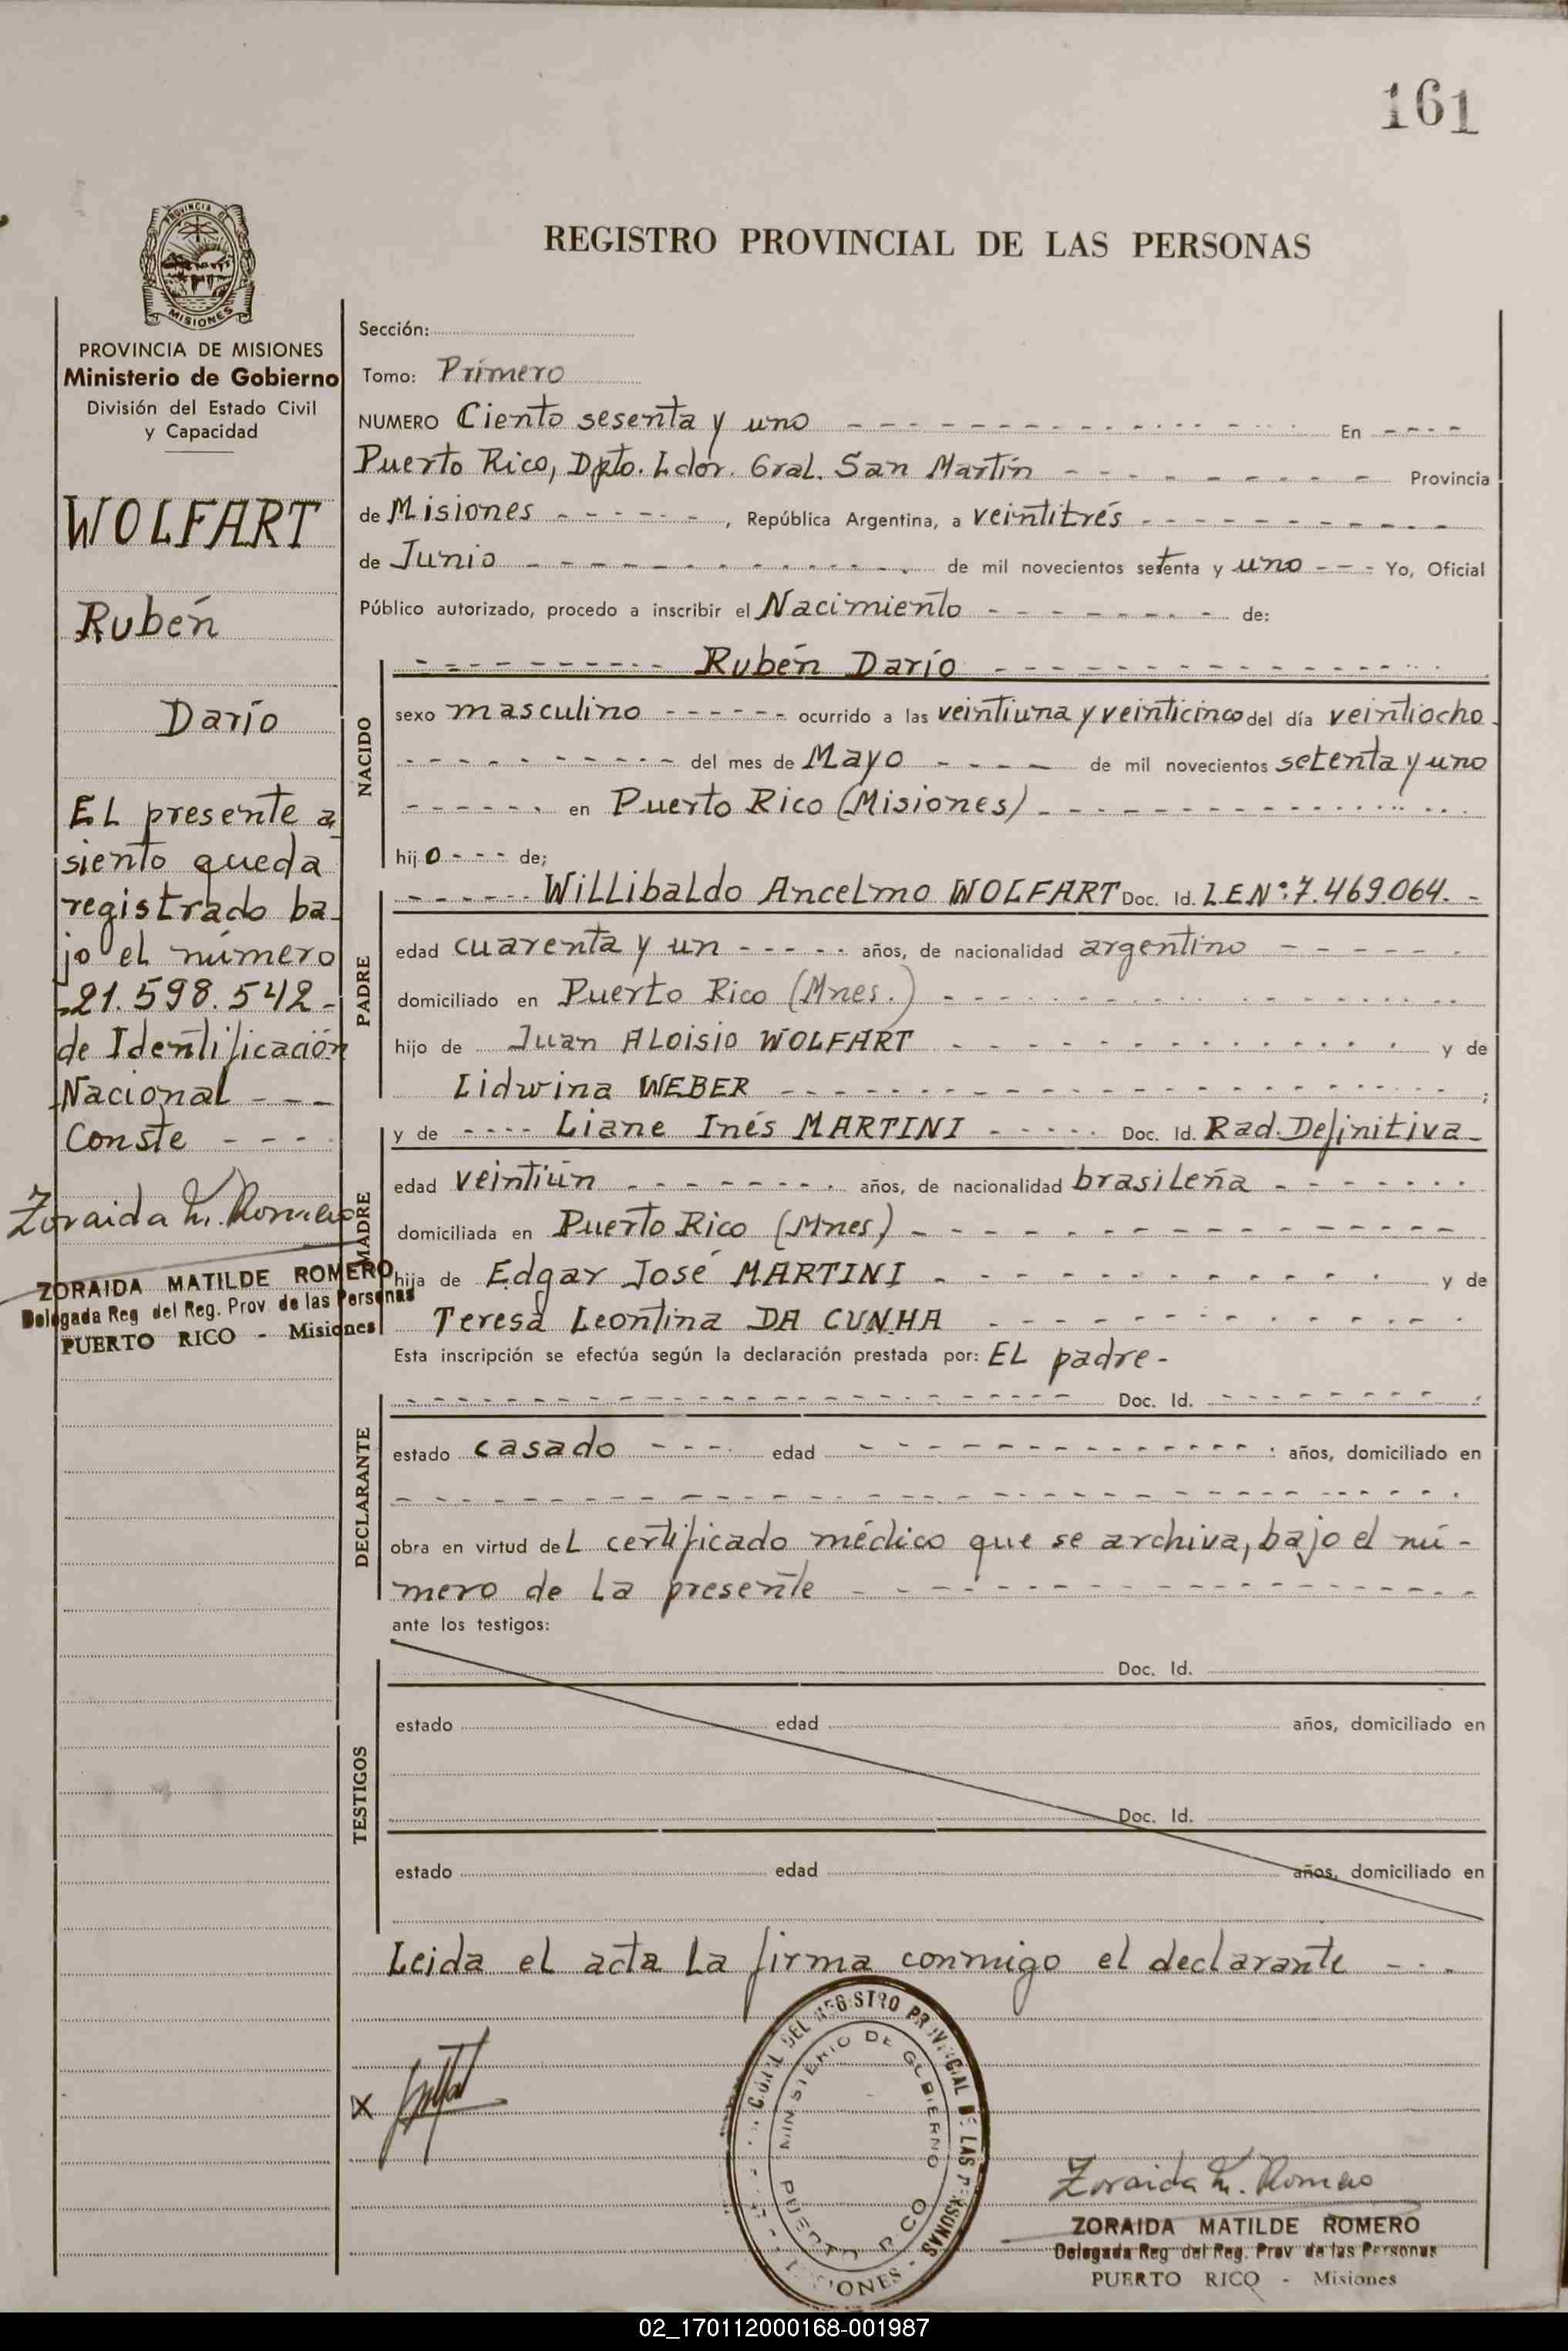 161
PROVINCIA DE
MISIONES
REGISTRO PROVINCIAL DE LAS PERSONAS
PROVINCIA DE MISIONES
Ministerio de Gobierno
División del Estado Civil
y Capacidad
WOLFART
Rubén
Darío
EL presente a
siento queda
registrado ba-
jo el número
-21.598.542-
de Identificación
Nacional - - -
Conste - - - -
Zoraida M. Romero
ZORAIDA MATILDE ROMERO
Delegada Reg del Reg. Prov. de las Personas
PUERTO RICO - Misiones
Sección:
Tomo: Primero
NUMERO Ciento sesenta y uno - - - En - - - -
Puerto Rico, Dpto. Ldor. Gral. San Martín - - - Provincia
de Misiones - - - - - -, República Argentina, a veintitrés - - -
de Junio - - - de mil novecientos setenta y uno - - - Yo, Oficial
Público autorizado, procedo a inscribir el Nacimiento - - - de:
- - - Rubén Darío - - -
NACIDO
sexo masculino - - - - - - ocurrido a las veintiuna y veinticinco del día veintiocho
- - - del mes de Mayo - - - - de mil novecientos setenta y uno
- - - - - - en Puerto Rico (Misiones) - - -
hijo - - - de;
PADRE
- - - - - - Willibaldo Ancelmo WOLFART Doc. Id. L.E.Nº:7.469.064. -
edad cuarenta y un - - - - - años, de nacionalidad argentino - - - - - -
domiciliado en Puerto Rico (Mnes.) - - -
hijo de Juan ALoisio WOLFART - - - y de
Lidwina WEBER - - - ;
MADRE
y de - - - - Liane Inés MARTINI - - - - - Doc. Id. Rad. Definitiva -
edad veintiún - - - - - - - - años, de nacionalidad brasileña - - - - - - -
domiciliada en Puerto Rico (Mnes) - - -
hija de Edgar José MARTINI - - - y de
Teresa Leontina DA CUNHA - - -
Esta inscripción se efectúa según la declaración prestada por: EL padre -
DECLARANTE
- - - Doc. Id. - - -
estado casado - - - - edad - - - años, domiciliado en
- - -
obra en virtud deL certificado médico que se archiva, bajo el nú-
mero de la presente - - -
ante los testigos:
TESTIGOS
Doc. Id.
estado edad años, domiciliado en
Doc. Id.
estado edad años, domiciliado en
Leida el acta la firma conmigo el declarante - - -
X
DEL REGISTRO PROVINCIAL DE LAS PERSONAS - MISIONES
MINISTERIO DE GOBIERNO
PUERTO RICO
Zoraida M. Romero
ZORAIDA MATILDE ROMERO
Delegada Reg del Reg. Prov de las Personas
PUERTO RICO - Misiones
02_170112000168-001987